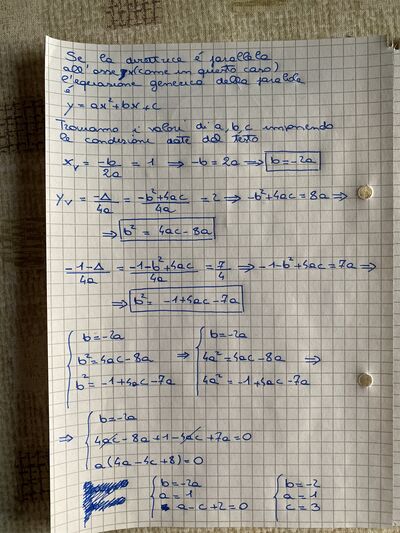 Se la direttrice è parallela
all'asse x (come in questo caso)
l'equazione generica della parabola
è
y = ax² + bx + c
Troviamo i valori di a, b, c imponendo
le condizioni date dal testo
x_v = -b/2a = 1 ⇒ -b = 2a ⇒ b = -2a
y_v = -Δ/4a = -b²+4ac/4a = 2 ⇒ -b²+4ac = 8a ⇒
⇒ b² = 4ac - 8a
-1-Δ/4a = -1-b²+4ac/4a = 7/4 ⇒ -1-b²+4ac = 7a ⇒
⇒ b² = -1+4ac-7a
{ b = -2a { b = -2a
b² = 4ac - 8a ⇒ 4a² = 4ac - 8a ⇒
b² = -1+4ac-7a 4a² = -1+4ac-7a
{ b = -2a
⇒ 4ac - 8a + 1 - 4ac + 7a = 0
a(4a - 4c + 8) = 0
{ b = -2a { b = -2
a = 1 a = 1
a - c + 2 = 0 c = 3